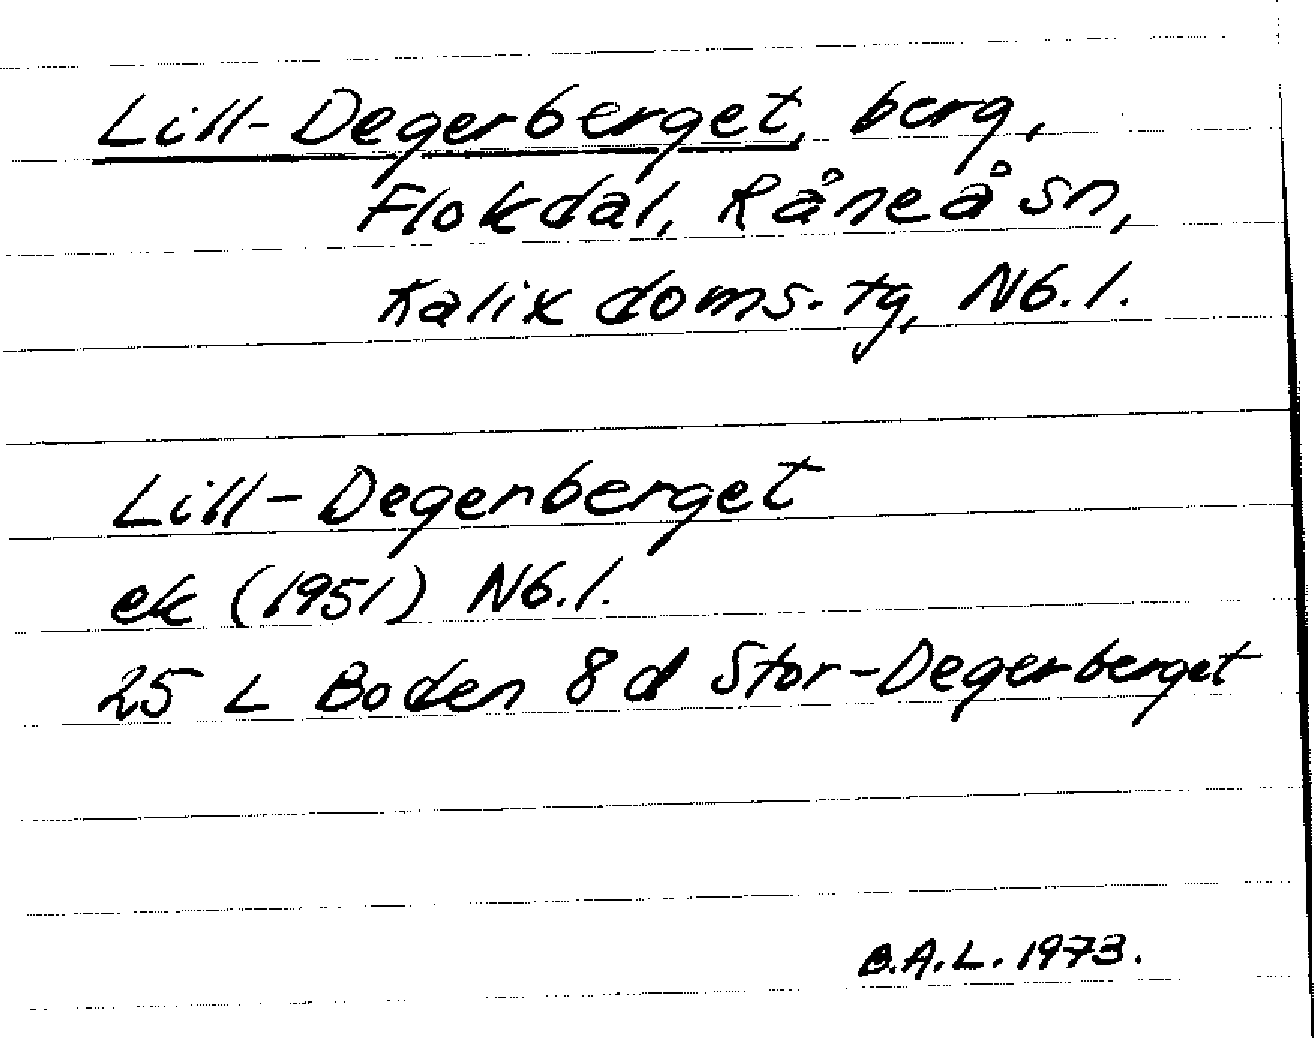 Lill-Degerberget, berg,
Flokdal, Råneå sn,
Kalix doms.tg, Nb.l.
Lill-Degerberget
ek (1951) Nb.l.
25 L Boden 8 d Stor-Degerberget
B.A.L. 1973.